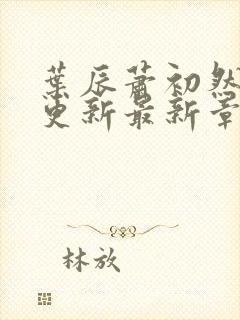 葉辰蕭初然
更新最新章
林放